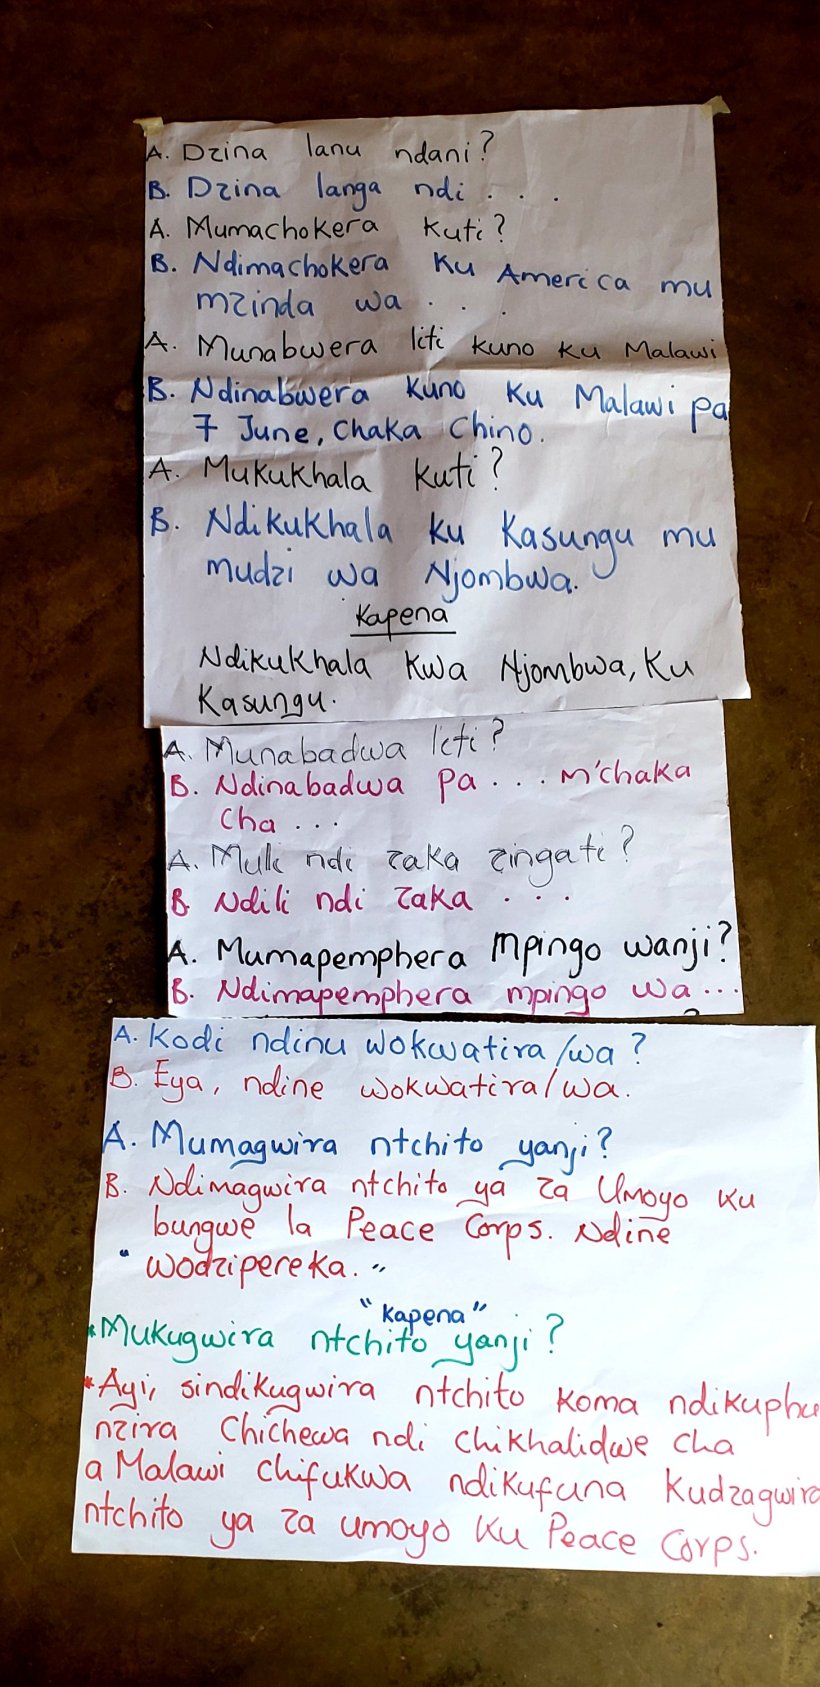 A. Dzina lanu ndani?
B. Dzina langa ndi . . .
A. Mumachokera kuti?
B. Ndimachokera ku America mu
mzinda wa . . .
A. Munabwera liti kuno ku Malawi
B. Ndinabwera kuno ku Malawi pa
7 June, chaka chino.
A. Mukukhala kuti?
B. Ndikukhala ku Kasungu mu
mudzi wa Njombwa.
Kapena
Ndikukhala kwa Njombwa, ku
Kasungu.
A. Munabadwa liti?
B. Ndinabadwa pa . . . m'chaka
cha . . .
A. Muli ndi zaka zingati?
B. Ndili ndi zaka . . .
A. Mumapemphera mpingo wanji?
B. Ndimapemphera mpingo wa . . .
A. Kodi ndinu wokwatira/wa?
B. Eya, ndine wokwatira/wa.
A. Mumagwira ntchito yanji?
B. Ndimagwira ntchito ya za Umoyo ku
bungwe la Peace Corps. Ndine
"wodzipereka."
"Kapena"
*Mukugwira ntchito yanji?
*Ayi, sindikugwira ntchito koma ndikuphu
nzira Chichewa ndi chikhalidwe cha
a Malawi chifukwa ndikufuna kudzagwira
ntchito ya za umoyo ku Peace Corps.